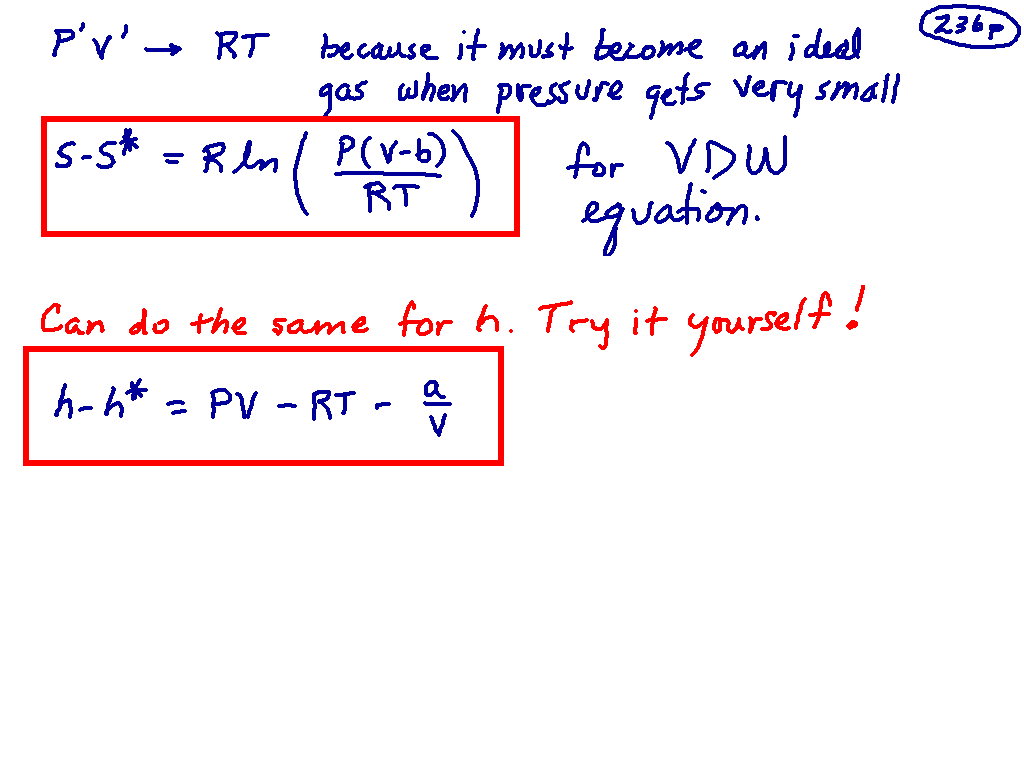 P'v' → RT because it must become an ideal 236p
gas when pressure gets very small
s-s* = R ln ( P(v-b) / RT ) for VDW
equation.
Can do the same for h. Try it yourself!
h-h* = PV - RT - a/v